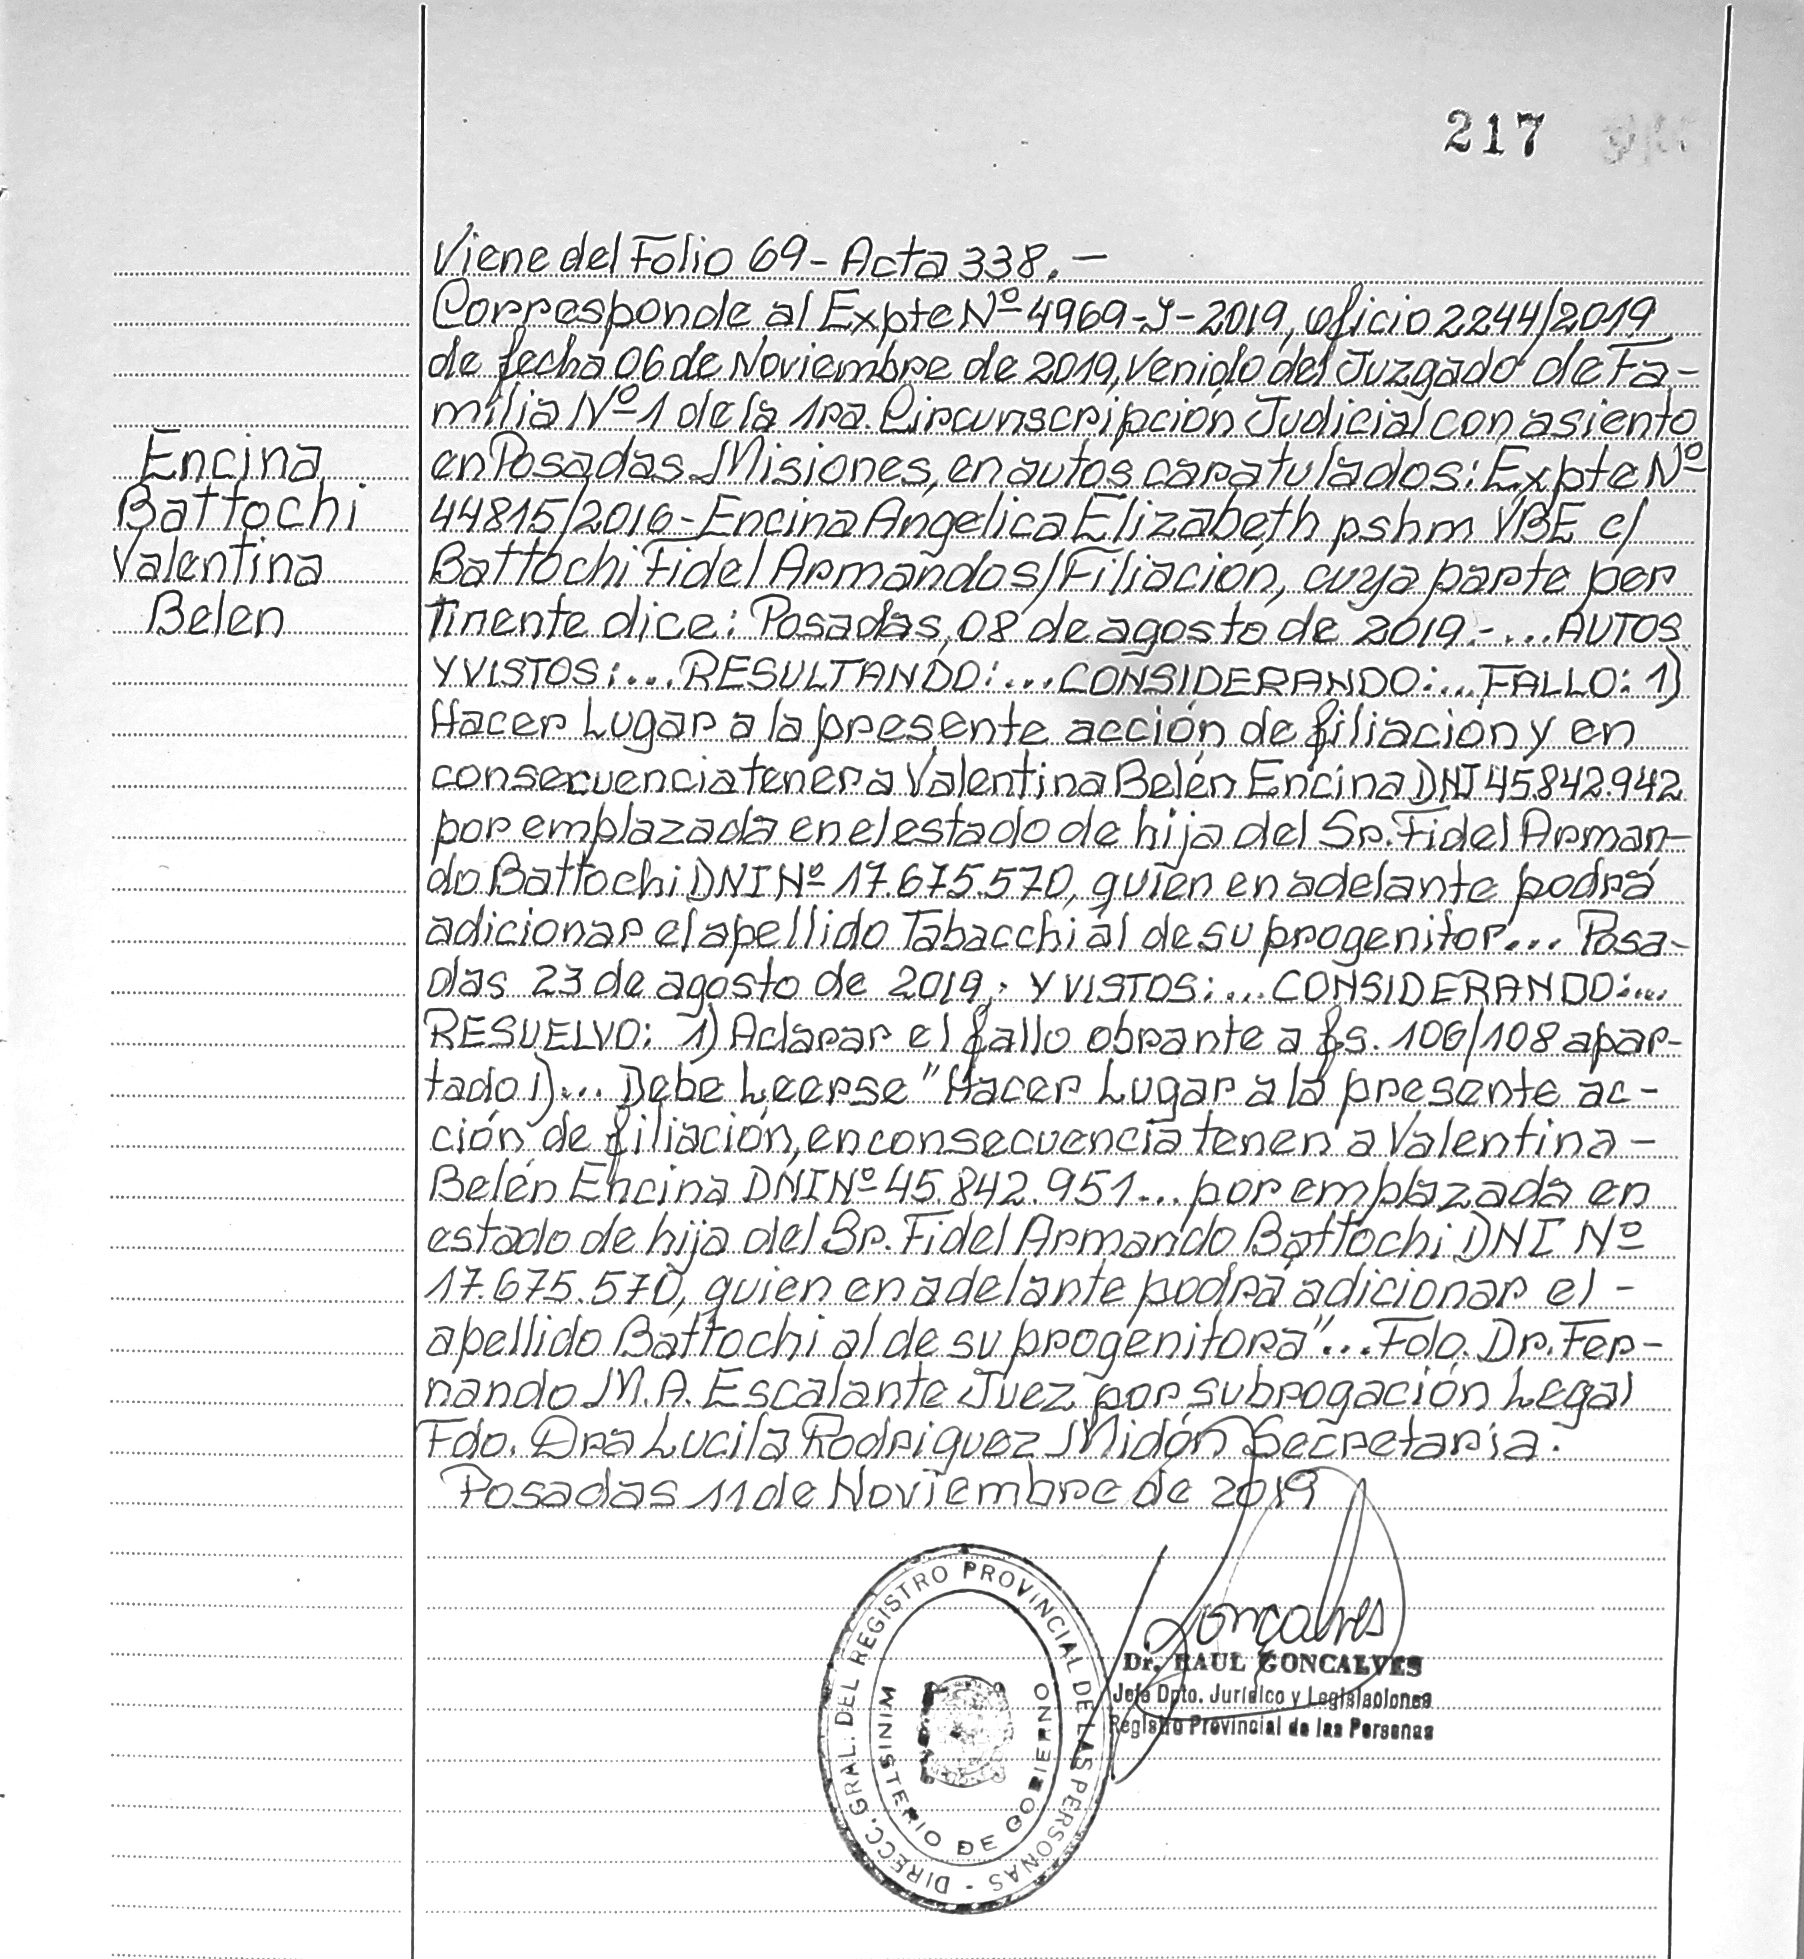 217
Viene del Folio 69 - Acta 338. -
Corresponde al Expte Nº 4969-J-2019, oficio 2244/2019
de fecha 06 de Noviembre de 2019, venido del Juzgado de Fa-
milia Nº 1 de la 1ra. Circunscripción Judicial con asiento
en Posadas Misiones, en autos caratulados: Expte Nº
44815/2016 - Encina Angelica Elizabeth pshm VBE c/
Battochi Fidel Armando s/Filiación, cuya parte per
tinente dice: Posadas, 08 de agosto de 2019.- ... AUTOS
Y VISTOS: ... RESULTANDO: ... CONSIDERANDO: ... FALLO: 1)
Hacer Lugar a la presente acción de filiación y en
consecuencia tener a Valentina Belén Encina DNI 45.842.942
por emplazada en el estado de hija del Sr. Fidel Arman-
do Battochi DNI Nº 17.675.570, quien en adelante podrá
adicionar el apellido Tabacchi al de su progenitor... Posa-
das 23 de agosto de 2019.: Y VISTOS: ... CONSIDERANDO: ....
RESUELVO: 1) Aclarar el fallo obrante a fs. 106/108 apar-
tado 1)... Debe Leerse "Hacer Lugar a la presente ac-
ción de filiación, en consecuencia tener a Valentina -
Belén Encina DNI Nº 45.842.951... por emplazada en
estado de hija del Sr. Fidel Armando Battochi DNI Nº
17.675.570, quien en adelante podrá adicionar el -
apellido Battochi al de su progenitora"... Fdo. Dr. Fer-
nando M.A. Escalante Juez por subrogación Legal
Fdo. Dra Lucila Rodriguez Midón Secretaria.
Posadas 11 de Noviembre de 2019
Encina
Battochi
Valentina
Belen
DIRECC. GRAL. DEL REGISTRO PROVINCIAL DE LAS PERSONAS -
MINISTERIO DE GOBIERNO
Gonçalves
Dr. RAUL GONCALVES
Jefe Dpto. Jurídico y Legislaciones
Registro Provincial de las Personas